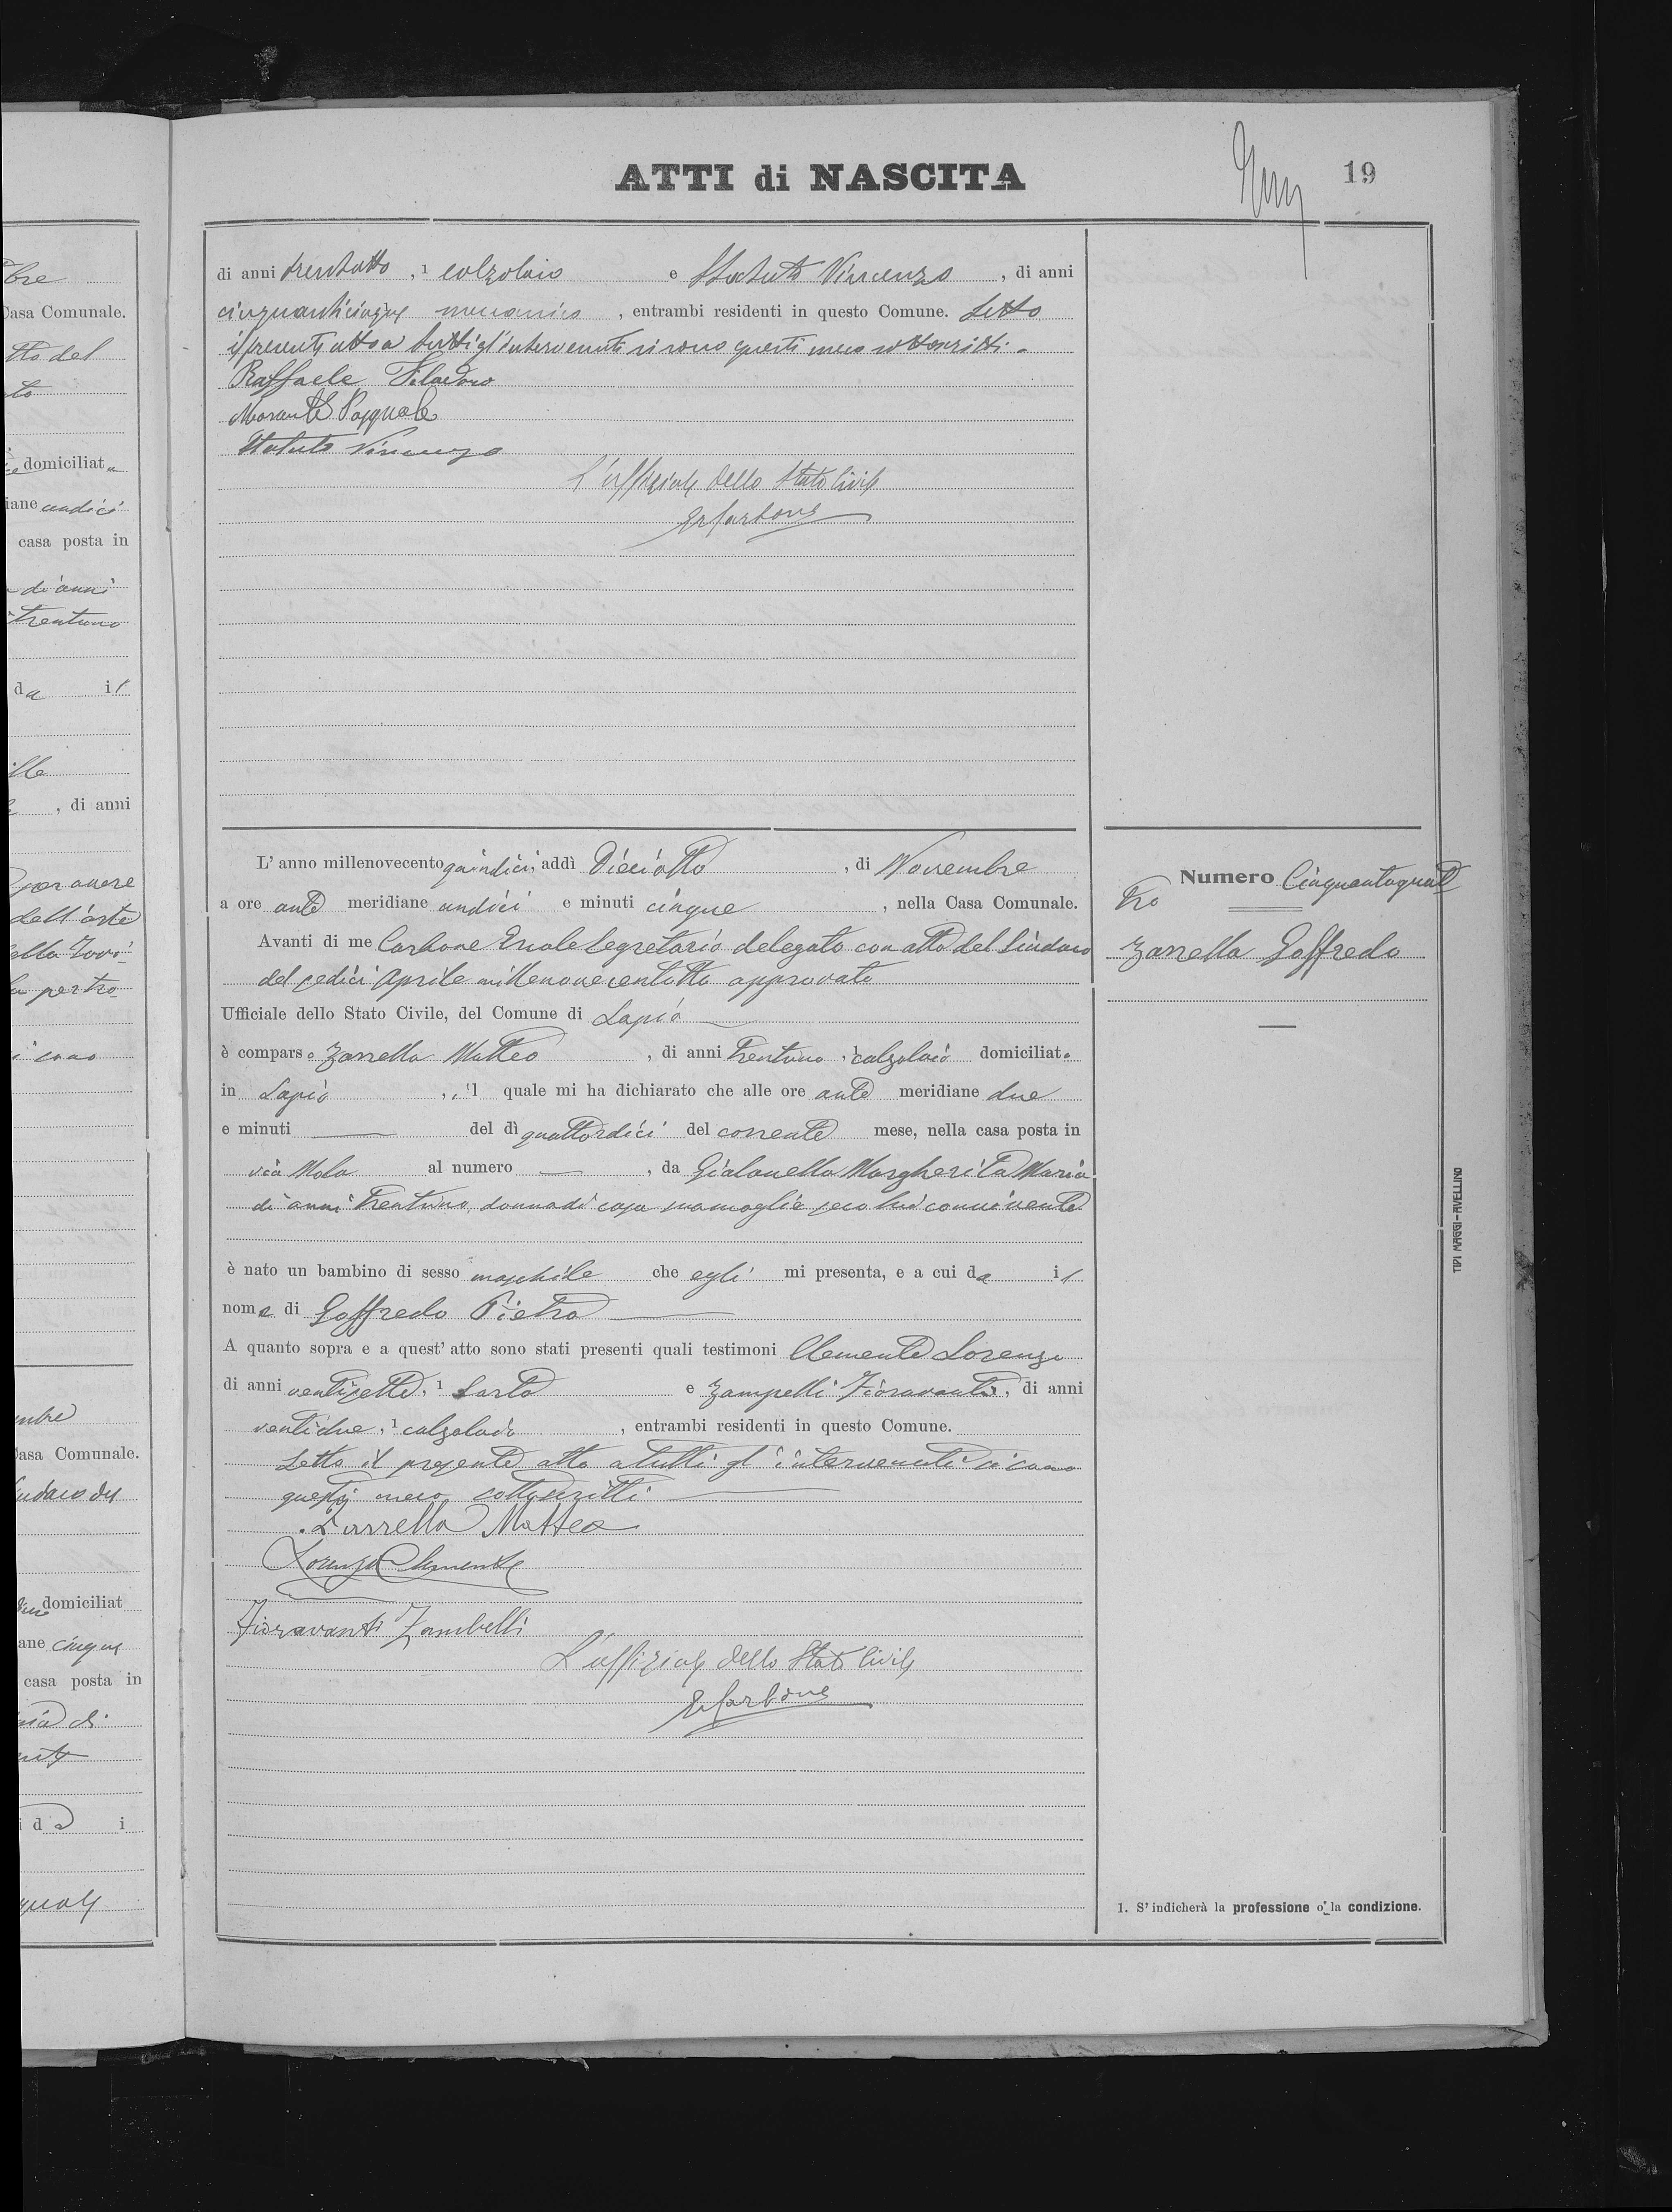 ATTI di NASCITA
19
di anni trentotto, 1 calzolaio e Statuto Vincenzo, di anni
cinquanticinque meccanico, entrambi residenti in questo Comune. Letto
il presente atto a tutti gl'intervenuti si sono questi meco sottoscritti.
Raffaele
Morante Pasquale
Statuto Vincenzo
L'uffiziale dello Stato Civile
Er Carbone
L'anno millenovecentoquindici, addì Dieciotto, di Novembre
a ore ante meridiane undici e minuti cinque, nella Casa Comunale.
Avanti di me Carbone Ercole Segretario delegato con atto del Sindaco
del sedici Aprile millenovecentotto approvato
Ufficiale dello Stato Civile, del Comune di Lapio
è comparso Zarrella Matteo, di anni trentuno, 1 calzolaio domiciliato
in Lapio, il quale mi ha dichiarato che alle ore ante meridiane due
e minuti — del dì quattordici del corrente mese, nella casa posta in
via Mola al numero —, da Gialanella Margherita Maria
di anni trentuno, donna di casa sua moglie seco lui convivente
è nato un bambino di sesso maschile che egli mi presenta, e a cui da il
nome di Goffredo Pietro
A quanto sopra e a quest'atto sono stati presenti quali testimoni Clemente Lorenzo
di anni ventisette, 1 Sarto e Zampelli Fioravante, di anni
ventidue, 1 calzolaio, entrambi residenti in questo Comune.
Letto il presente atto a tutti gl'intervenuti si sono
questi meco sottoscritti
Zarrella Matteo
Lorenzo Clemente
Fioravanti Zambelli
L'uffiziale dello Stato Civile
Er Carbone
Numero Cinquantaquat
tro
Zarrella Goffredo
TIPI MAGGI-AVELLINO
1. S'indicherà la professione o la condizione.
bre
Casa Comunale.
tto del
to
domiciliata
iane undici
casa posta in
di anni
trentuno
da il
, di anni
per avere
Casa Comunale.
domiciliat
ane cinque
casa posta in